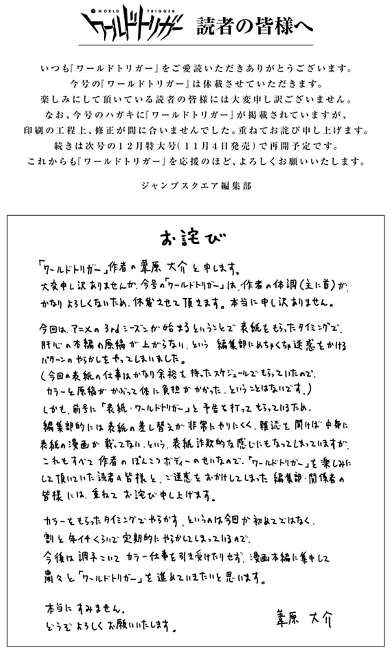 WORLD TRIGGER
ワールドトリガー 読者の皆様へ
いつも『ワールドトリガー』をご愛読いただきありがとうございます。
今号の『ワールドトリガー』は休載させていただきます。
楽しみにして頂いている読者の皆様には大変申し訳ございません。
なお、今号のハガキに『ワールドトリガー』が掲載されていますが、
印刷の工程上、修正が間に合いませんでした。重ねてお詫び申し上げます。
続きは次号の12月特大号(11月4日発売)で再開予定です。
これからも『ワールドトリガー』を応援のほど、よろしくお願いいたします。
ジャンプスクエア編集部
お詫び
「ワールドトリガー」作者の葦原 大介と申します。
大変申し訳ありませんが、今号の「ワールドトリガー」は、作者の体調(主に首)が
かなりよろしくないため、休載させて頂きます。本当に申し訳ありません。
今回は、アニメの3rdシーズンが始まるということで表紙をもらったタイミングで、
肝心の本編の原稿が上がらない、という 編集部にめちゃくちゃ迷惑をかける
パターンのやらかしをやってしまいました。
(今回の表紙の仕事はかなり余裕を持ったスケジュールでもらっていたので、
カラーと原稿がかぶって体に負担がかかった、ということはないです。)
しかも、前号に「表紙・ワールドトリガー」と予告も打ってもらっているため、
編集部的には表紙の差し替えが非常にやりにくく、雑誌を開けば中身に
表紙の漫画が載ってない、という、表紙詐欺的な感じにもなってしまっていますが、
これもすべて作者のぽんこつボディーのせいなので、「ワールドトリガー」を楽しみに
して頂いていた読者の皆様と、ご迷惑をおかけしてしまった編集部・関係者の
皆様には、重ねてお詫び申し上げます。
カラーをもらったタイミングでやらかす、というのは今回が初めてではなく、
割と年イチくらいで定期的にやらかしてしまっているので、
今後は調子こいてカラー仕事を引き受けたりせず、漫画本編に集中して
粛々と「ワールドトリガー」を進めていきたいと思います。
本当にすみません。
どうぞよろしくお願いいたします。
葦原 大介